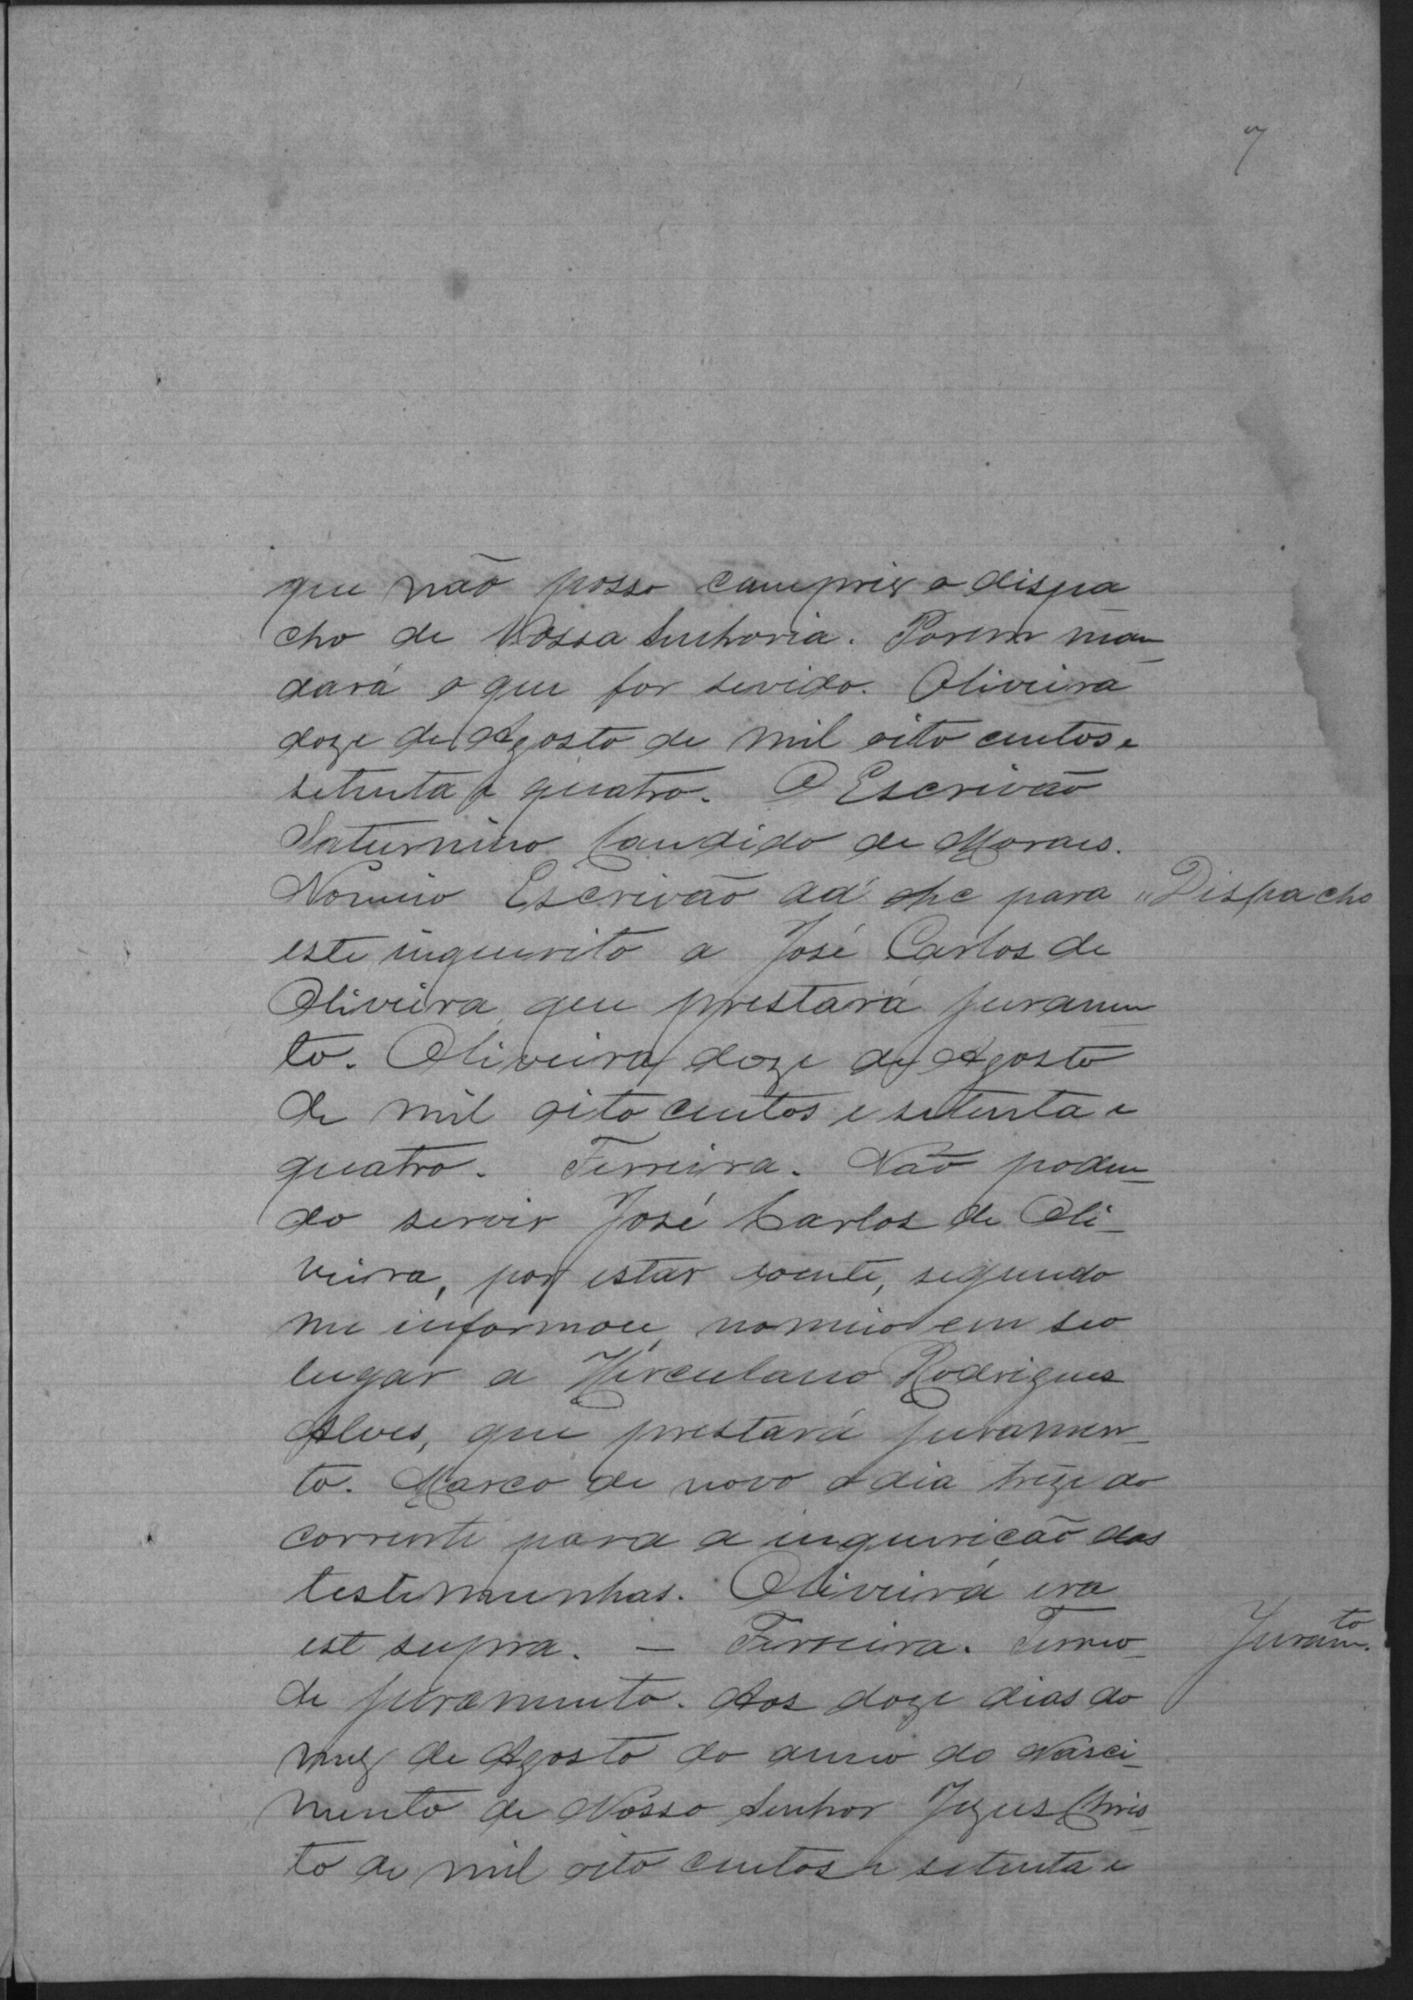 7
que não posso cumprir o dispa
cho de Vossa Senhoria. Porem man_
dará o que for servido. Oliveira
doze de Agosto de mil oito centos e
setenta e quatro. O Escrivão
Saturnino Candido de Moraes.
Nomeio Escrivão ad hc para "Dispacho
este inquerito a José Carlos de
Oliveira, que prestará juramen
to. Oliveira doze de Agosto
de mil oito centos e setenta e
quatro. Ferreira. Não poden_
do servir José Carlos de Oli_
veira, por estar doente, segundo
me informou, nomeio em seo
lugar a Herculano Rodrigues
Alves, que prestará juramen_
to. Marco de novo o dia treze do
corrente para a inquiricão das
testemunhas. Oliveira era
ut supra. — Ferreira. Termo_ Juramto.
de juramento. Aos doze dias do
mez de Agosto do anno do Nasci_
mento de Nosso Senhor Jezus Chris_
to de mil oito centos e setenta e